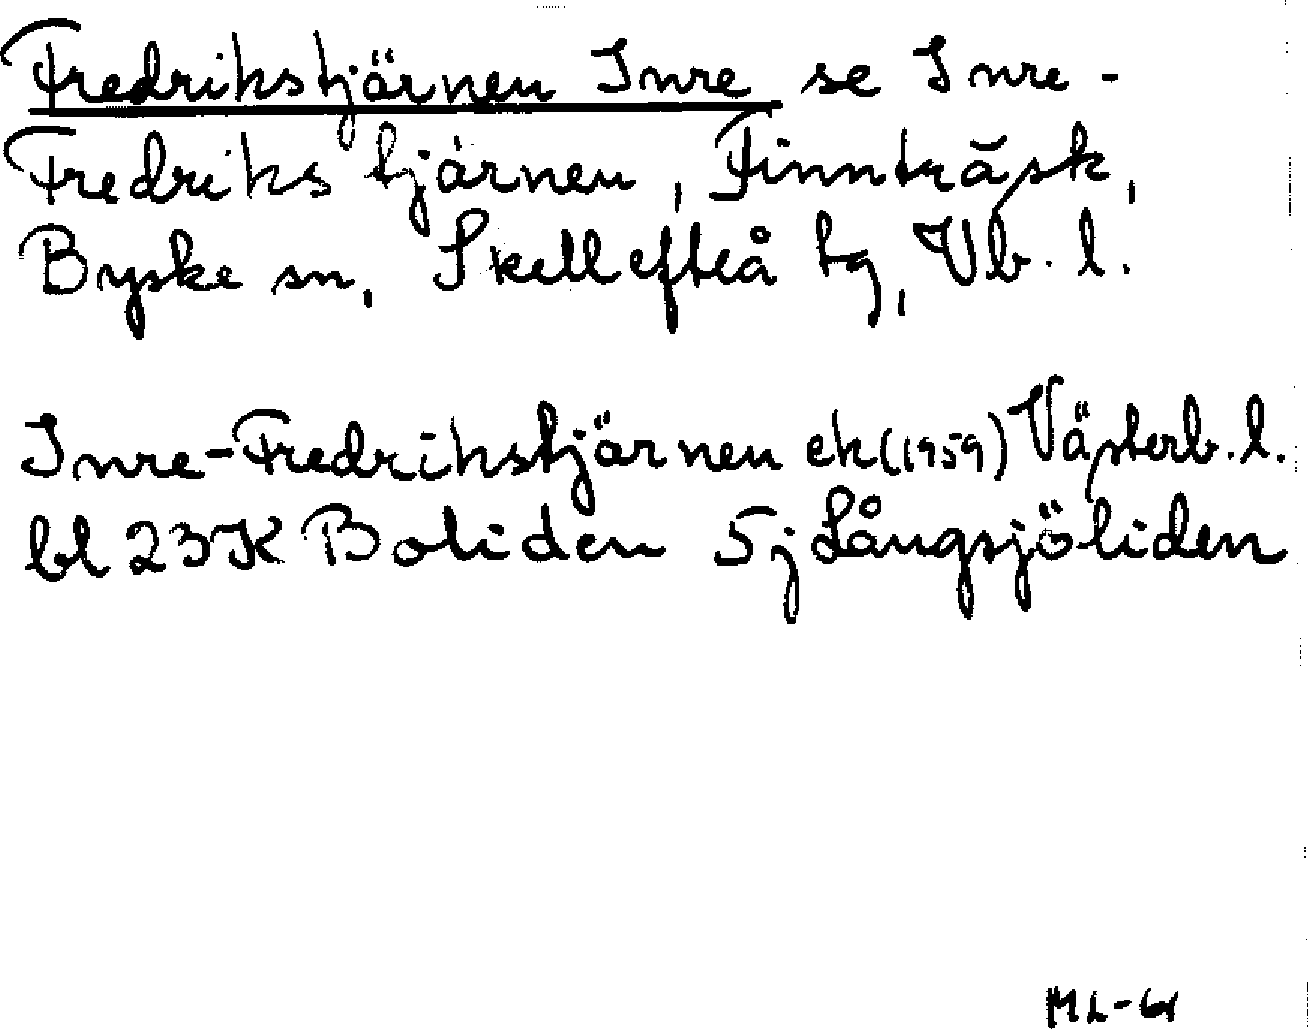 Fredrikstjärnen Inre se Inre-
Fredrikstjärnen, Finnträsk,
Byske sn, Skellefteå tg, Vb. l.
Inre-Fredrikstjärnen ek (1959) Västerb. l.
bl 23K Boliden 5j Långsjöliden
ML-61